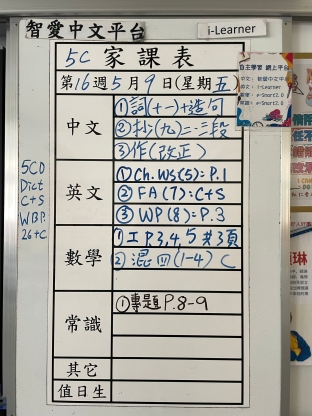 智愛中文平台
i-Learner
5C 家課表
第16週5月9日(星期五)
中文
①詞(十一)+造句
②抄(九)=二三段
③作(改正)
英文
①Ch. WS(5): P.1
②FA(7): C+S
③WP(8): P.3
數學
①工P.3,4,5共3頁
②混四(1-4) C
常識
①專題P.8-9
其它
值日生
5CD
Dict
C+S
WBP.
26+C
自主學習 網上平台